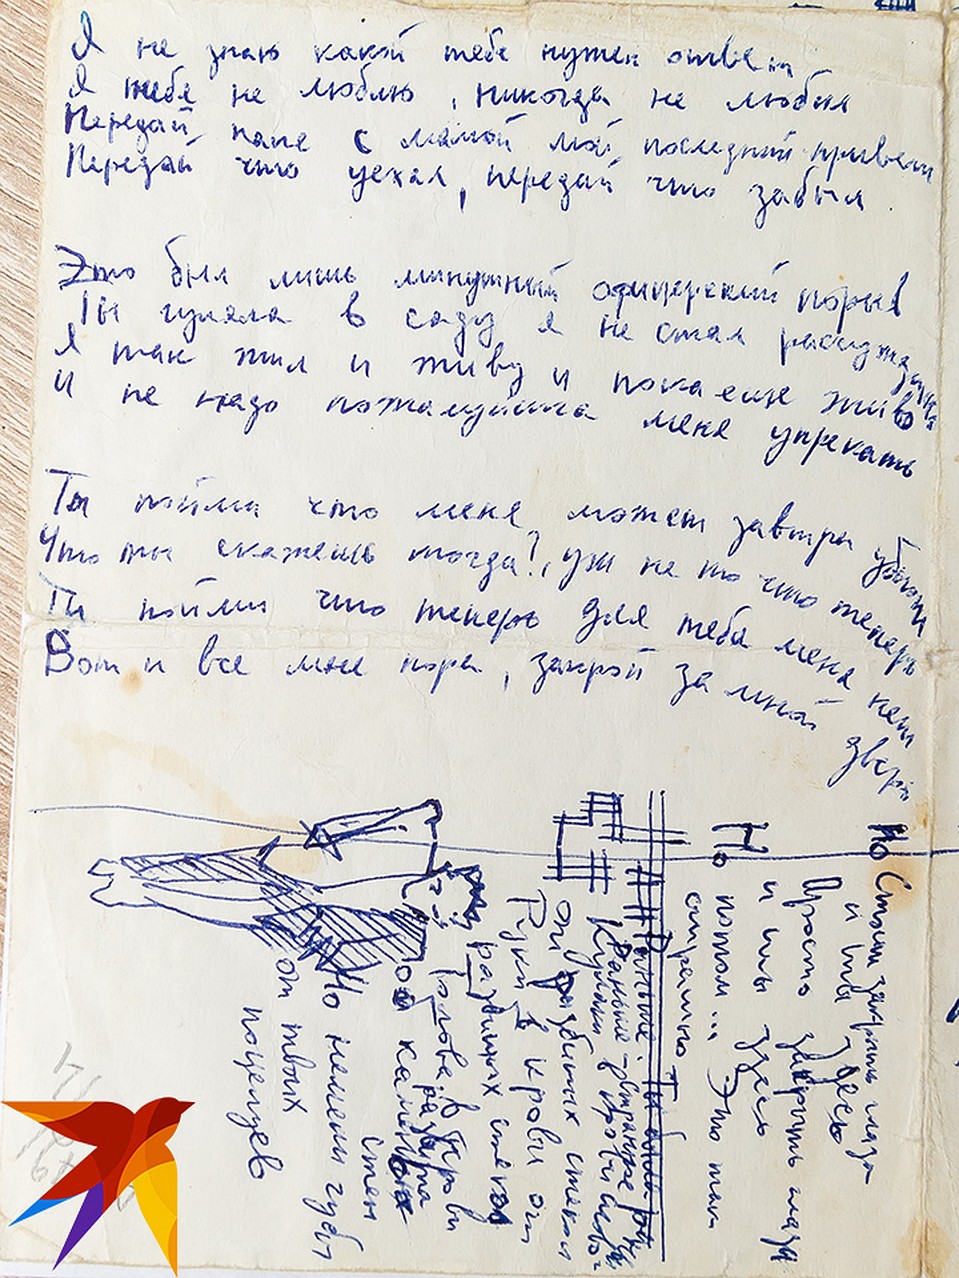 Я не знаю какой тебе нужен ответ
Я тебя не люблю, никогда не любил
Передай папе с мамой мой последний привет
Передай что уехал, передай что забыл
Это был лишь минутный офицерский порыв
Ты гуляла в саду я не стал рассуждать
Я так жил и живу и пока еще жив
И не надо пожалуйста меня упрекать
Ты пойми что меня может завтра убьют
Что ты скажешь тогда?, уж не то что теперь
Ты пойми что теперь для тебя меня нет
Вот и все мне пора, закрой за мной дверь
Но Стоит закрыть глаза
и ты здесь
Просто закрыть глаза
и ты здесь
Но потом... Это так
страшно
Раньше
Кулаки в крови
от разбитых стекол
Руки в крови от
разбитых стекол
Голова в крови
от каменных
стен
Но немеют губы
от твоих
поцелуев